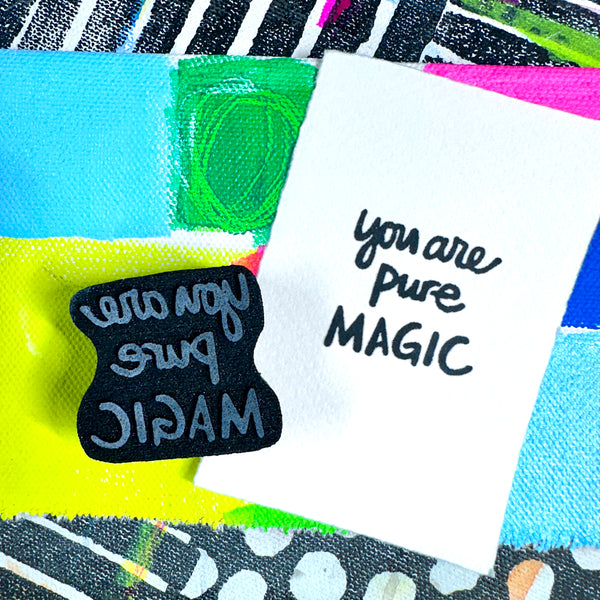 you are
pure
MAGIC
you are
pure
MAGIC